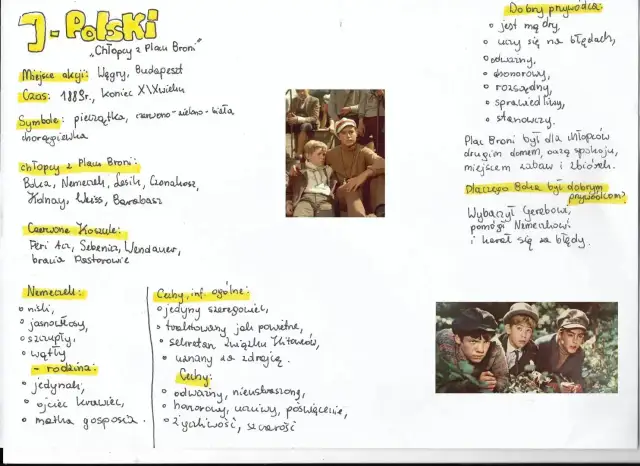 J-Polski
"Chłopcy z Placu Broni"
Miejsce akcji: Węgry, Budapeszt
Czas: 1889r., koniec XIX wieku
Symbole: pieczątka, czerwono-zielono-biała
chorągiewka
chłopcy z Placu Broni:
Boka, Nemeczek, Lesik, Czonakosz,
Kolnay, Weiss, Barabasz
Czerwone Koszule:
Feri Acz, Sebenicz, Wendauer,
bracia Pastorowie
Nemeczek:
niski,
jasnowłosy,
szczupły,
wątły
- rodzina:
jedynak,
ojciec krawiec,
matka gosposia.
Cechy, inf. ogólne:
jedyny szeregowiec,
traktowany jak powietrze,
sekretarz związku Kitowców,
uznany za zdrajcę.
Cechy:
odważny, nieustraszony,
honorowy, uczciwy, poświęcenie,
życzliwość, szczerość
Dobry przywódca:
jest mądry,
uczy się na błędach,
odważny,
honorowy,
rozsądny,
sprawiedliwy,
stanowczy.
Plac Broni był dla chłopców
drugim domem, oazą spokoju,
miejscem zabaw i zbiórek.
Dlaczego Boka był dobrym
przywódcom?
Wybaczył Gerebowi,
pomógł Nemeczkowi
i karał się za błędy.